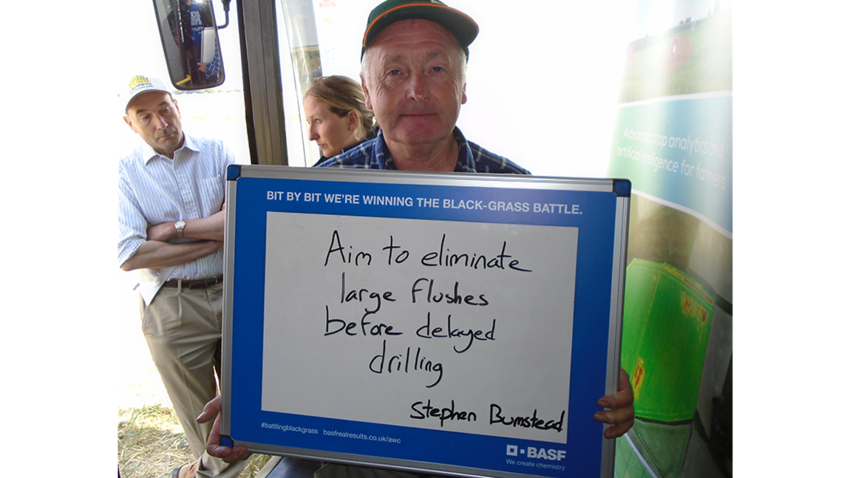 BIT BY BIT WE'RE WINNING THE BLACK-GRASS BATTLE.
Aim to eliminate
large flushes
before delayed
drilling
Stephen Bumstead
#battlingblackgrass basfrealresults.co.uk/awc
BASF
We create chemistry
Advanced crop analytics and
artificial intelligence for farmers